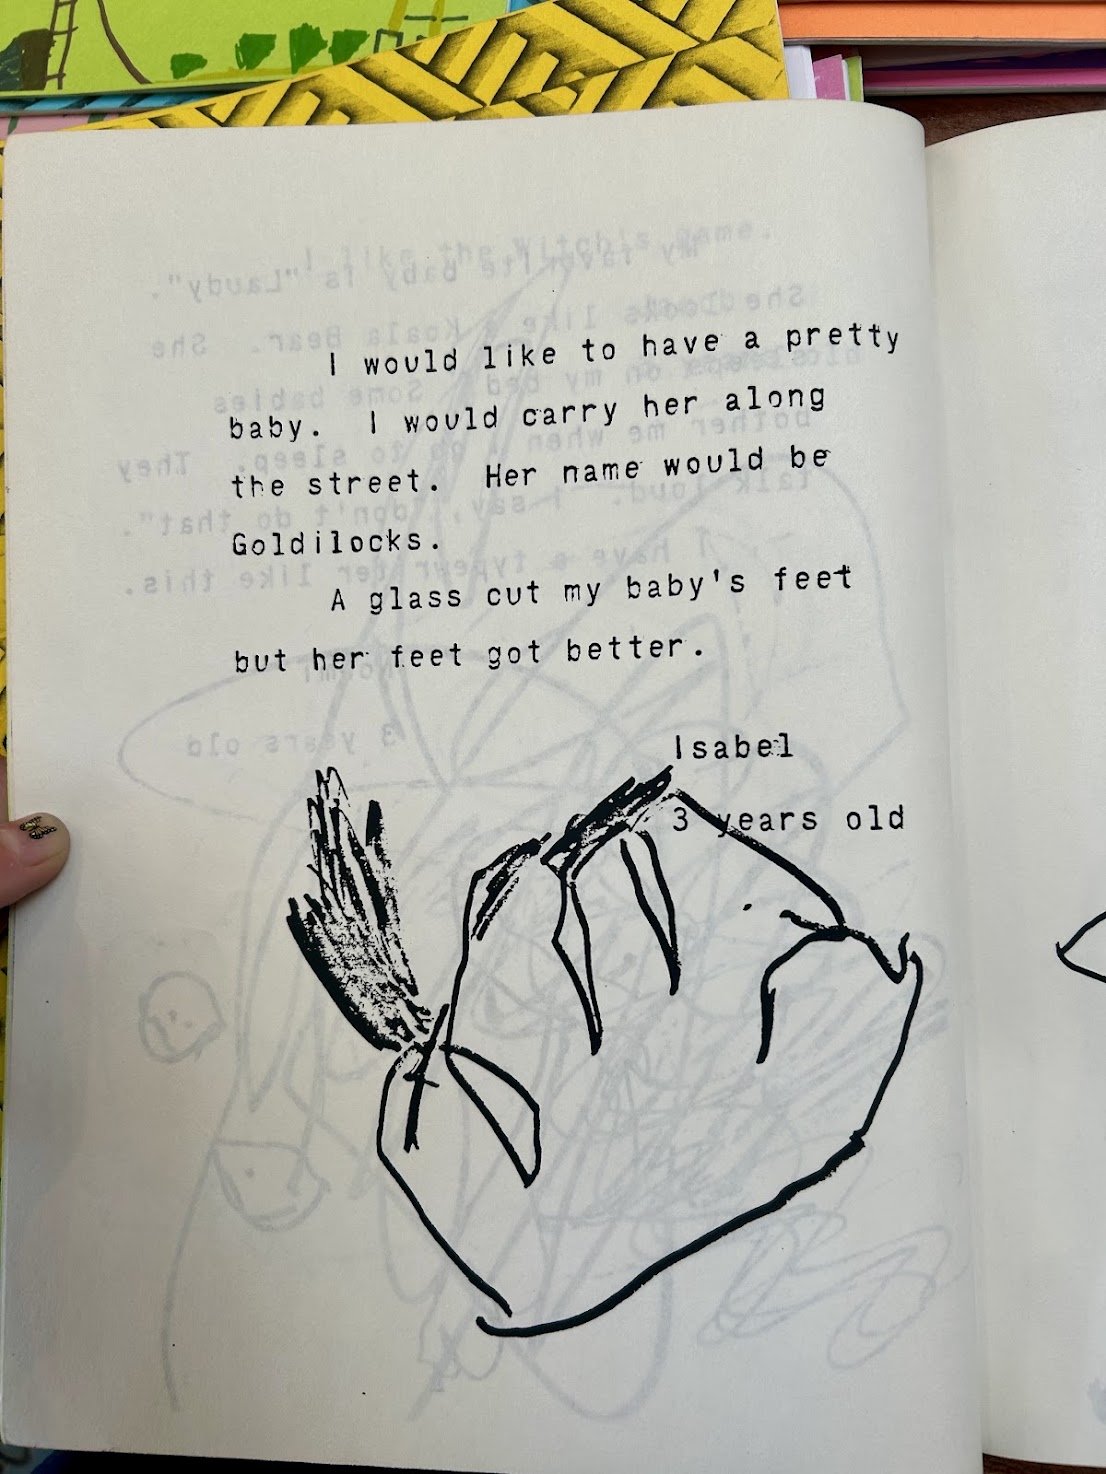 I would like to have a pretty
baby. I would carry her along
the street. Her name would be
Goldilocks.
A glass cut my baby's feet
but her feet got better.
Isabel
3 years old